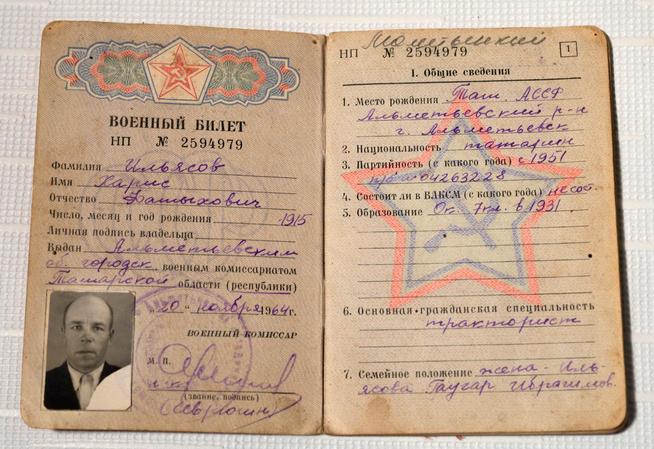 ВОЕННЫЙ БИЛЕТ
НП № 2594979
Фамилия Ильясов
Имя Харис
Отчество Фатыхович
Число, месяц и год рождения 1915
Личная подпись владельца
Выдан Альметьевским
об. городск. военным комиссариатом
Татарской области (республики)
"20" ноября 1964 г.
ВОЕННЫЙ КОМИССАР
М. П.
(звание, подпись)
НП № 2594979
1
I. Общие сведения
1. Место рождения Тат. АССР
Альметьевский р-н
г. Альметьевск
2. Национальность татарин
3. Партийность (с какого года) с 1951
04263228
4. Состоит ли в ВЛКСМ (с какого года) не сост.
5. Образование Ок. 7кл. в 1931.
6. Основная гражданская специальность
тракторист
7. Семейное положение жена - Иль
ясова Гаухар Ибрагимов.